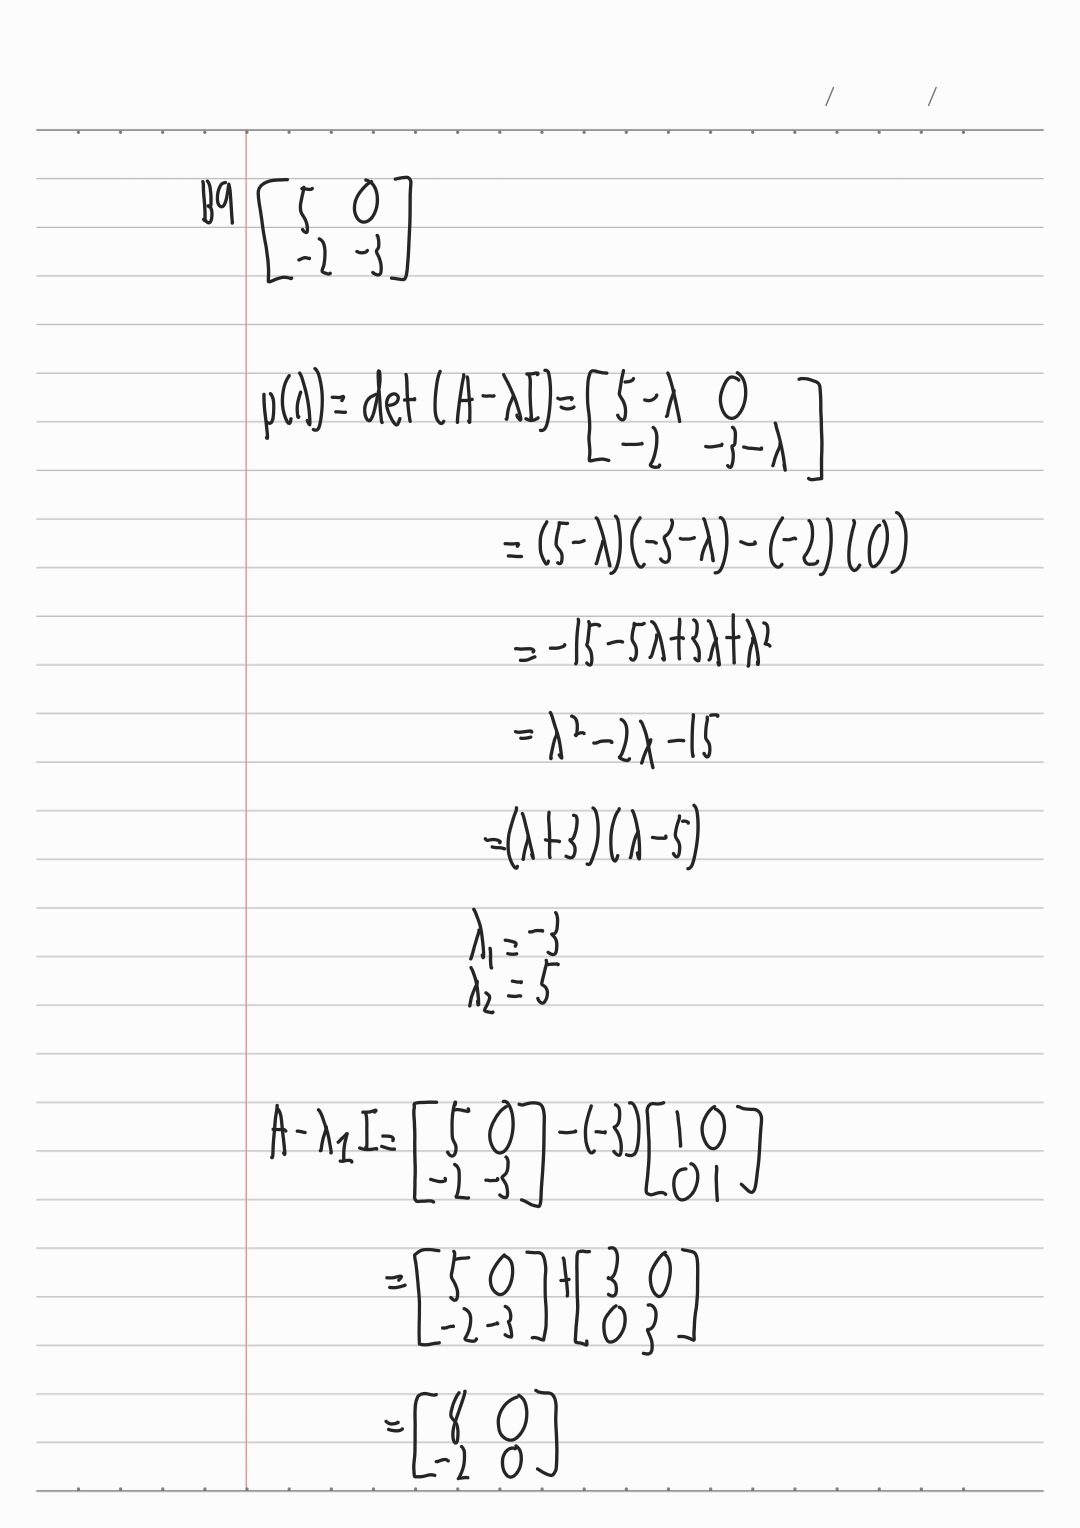 / /
B9 [5 0
-2 -3]
p(λ) = det (A - λI) = [5-λ 0
-2 -3-λ]
= (5-λ)(-3-λ) - (-2)(0)
= -15 - 5λ + 3λ + λ²
= λ² - 2λ - 15
= (λ+3)(λ-5)
λ₁ = -3
λ₂ = 5
A - λ₁I = [5 0 - (-3) [1 0
-2 -3] 0 1]
= [5 0 + [3 0
-2 -3] 0 3]
= [8 0
-2 0]